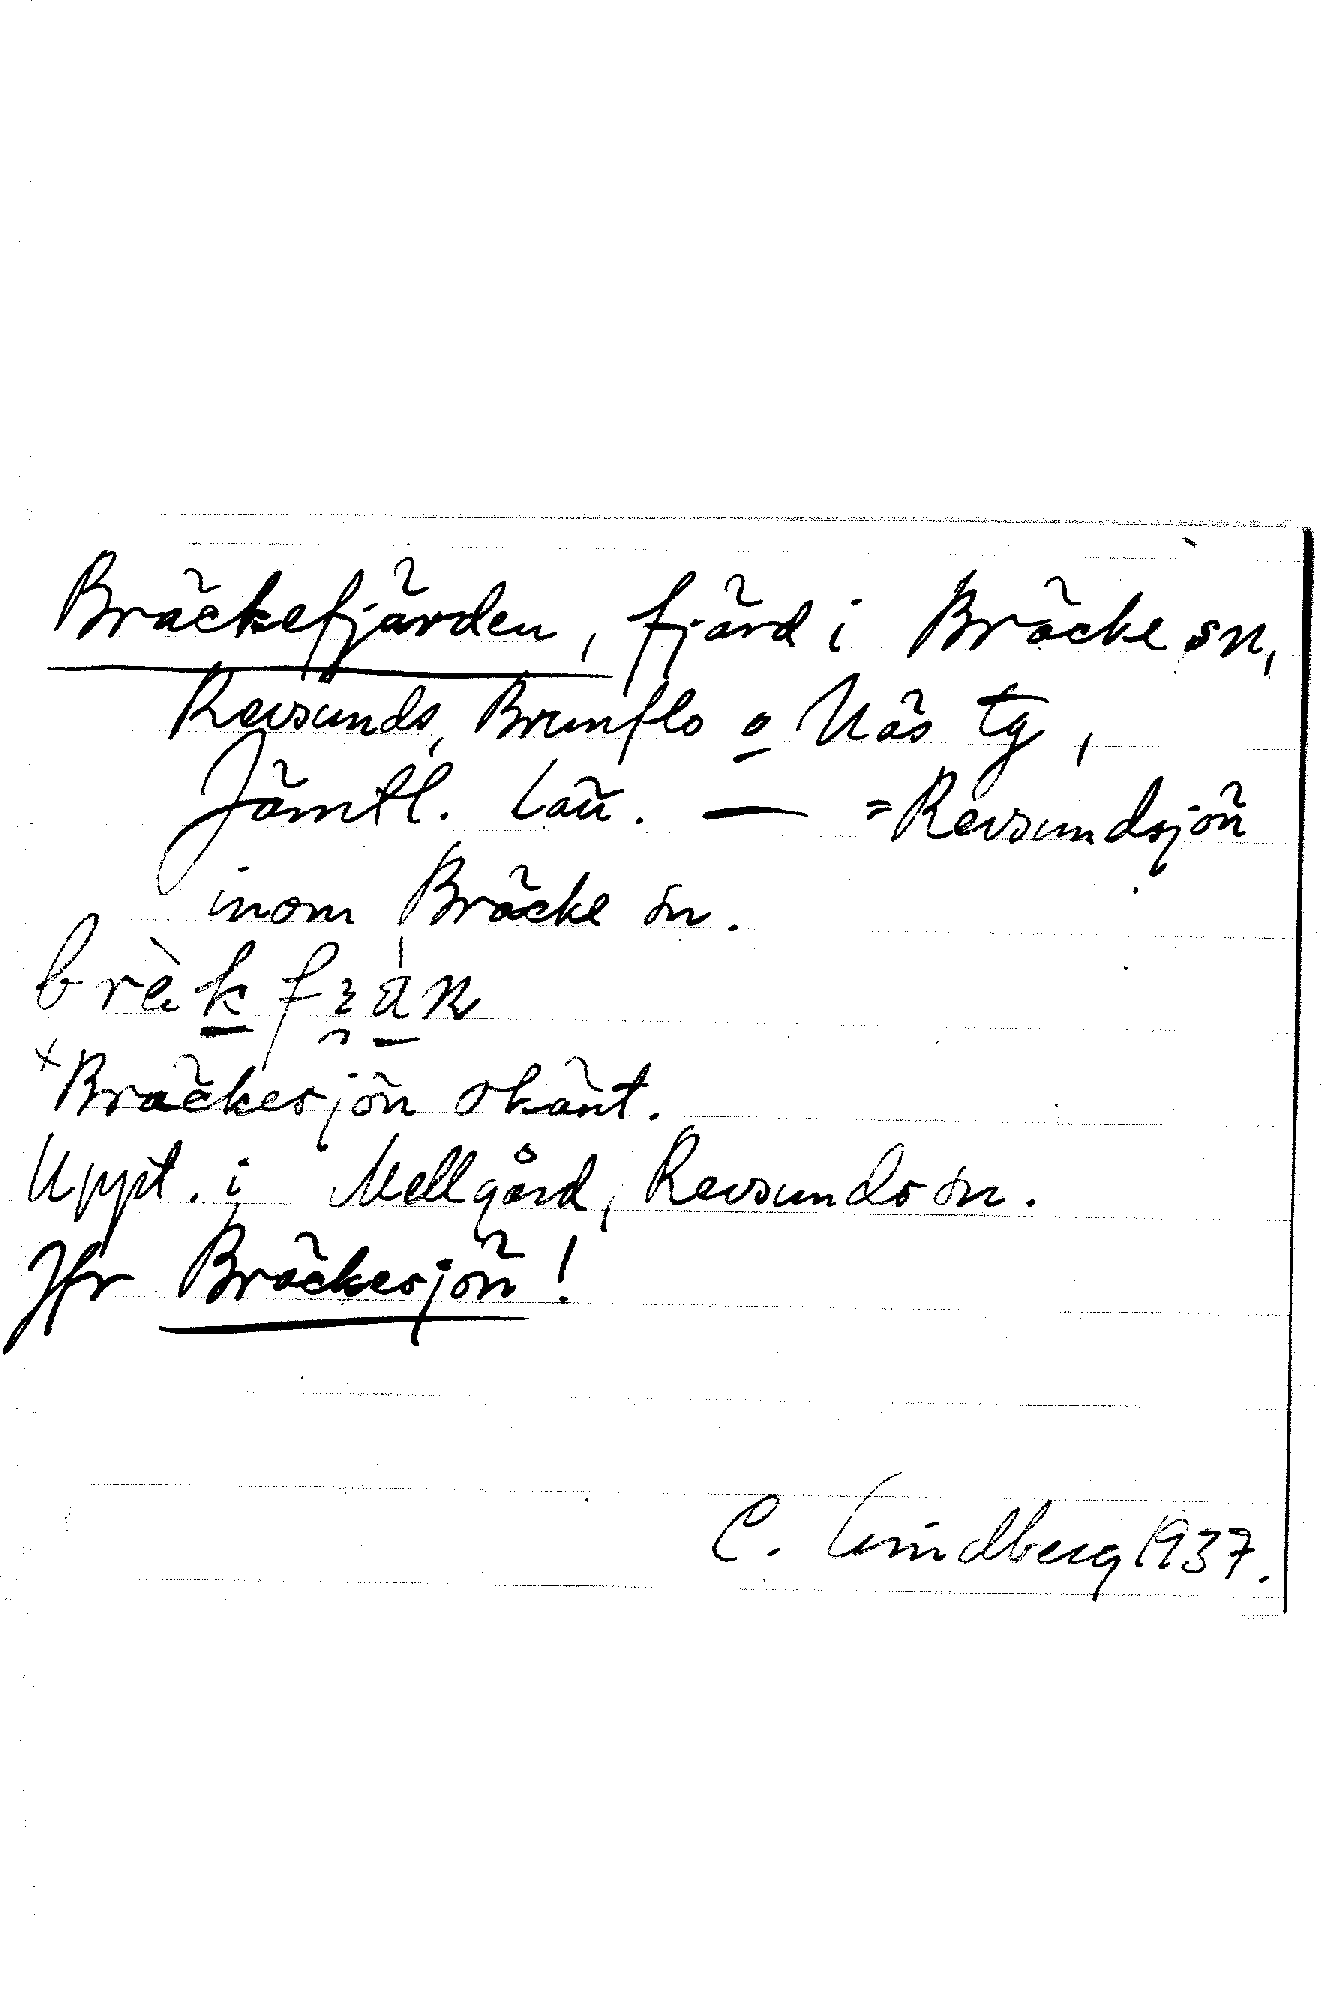 Bräckefjärden, fjärd i Bräcke sn,
Revsunds, Brunflo o Näs tg,
Jämtl. län. — =Revsundsjön
inom Bräcke sn.
*Bräckesjön okänt.
Uppt. i Mellgård, Revsunds sn.
Jfr Bräckesjön!
C. Lindberg 1937.